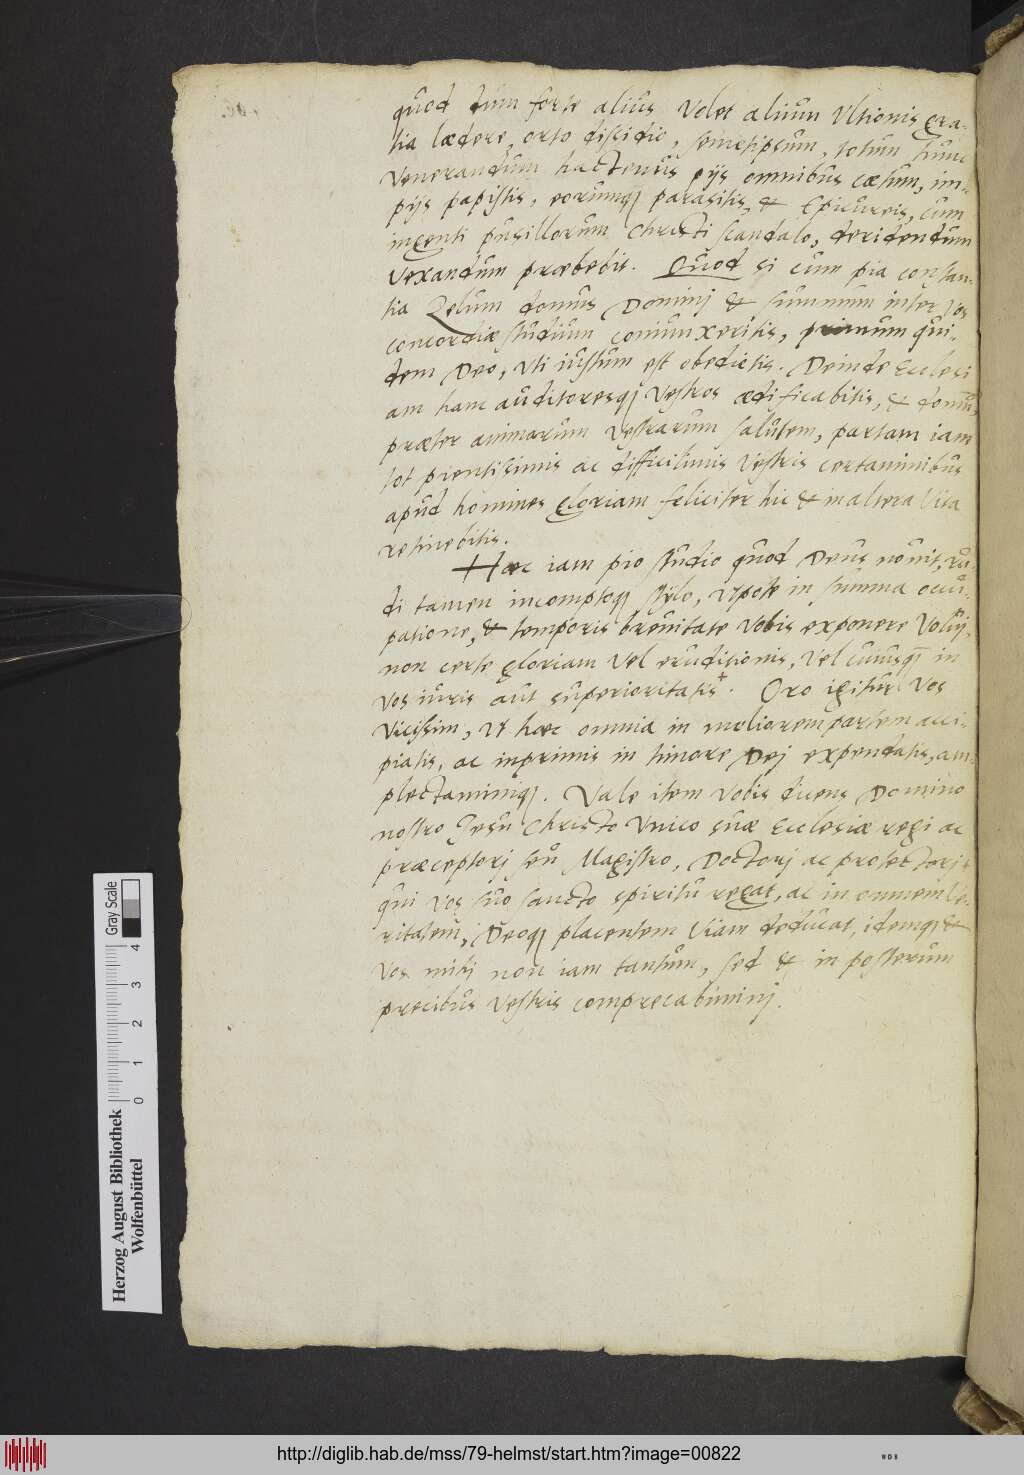 quod dum forte alius volet alium Ultionis gra-
tia lædere, orto dissidio, semetipsum, totum hunc
Venerandum hactenus pijs omnibus cætum, im-
pijs papistis, eorumq; parasitis, & Epicureis, cum
ingenti pusillorum Christi scandalo, deridendum
vexandum præbebit. Quod si cum pia constan-
tia Zelum domus Dominj & summum inter vos
concordiæ studium coniunxeritis, primum qui-
dem Deo, uti iustum est obedietis. Deinde Ecclesi
am hanc auditoresq; vestros ædificabitis, &
præter animarum vestrarum salutem, partam iam
tot pientissimis ac difficilimis vestris certaminibus
apud homines gloriam feliciter hic & in altera vita
retinebitis.
Hæc iam pio studio quod Deus nouit, ru-
di tamen incomptoq; stylo, utpote in summa occu-
patione, & temporis breuitate vobis exponere volui,
non certe gloriam vel eruditionis, vel cuiusq; in
vos iuris aut superioritatis. Oro igitur vos
vicissim, ut hæc omnia in meliorem partem acci-
piatis, ac inprimis in timore Dej expendatis, am-
plectaminiq;. Vale item vobis dicens Domino
nostro Jesu Christo Unico suæ Ecclesiæ regi ac
præceptorj seu Magistro, Doctorj ac protectorj
qui vos suo sancto spiritu regat, ac in omnem Ve-
ritatem, Deoq; placentem viam deducat, idemq;
vos mihj non iam tantum, sed & in posterum
precibus vestris comprecabiminj.
Gray Scale
0 1 2 3 4
Herzog August Bibliothek
Wolfenbüttel
http://diglib.hab.de/mss/79-helmst/start.htm?image=00822
WDB